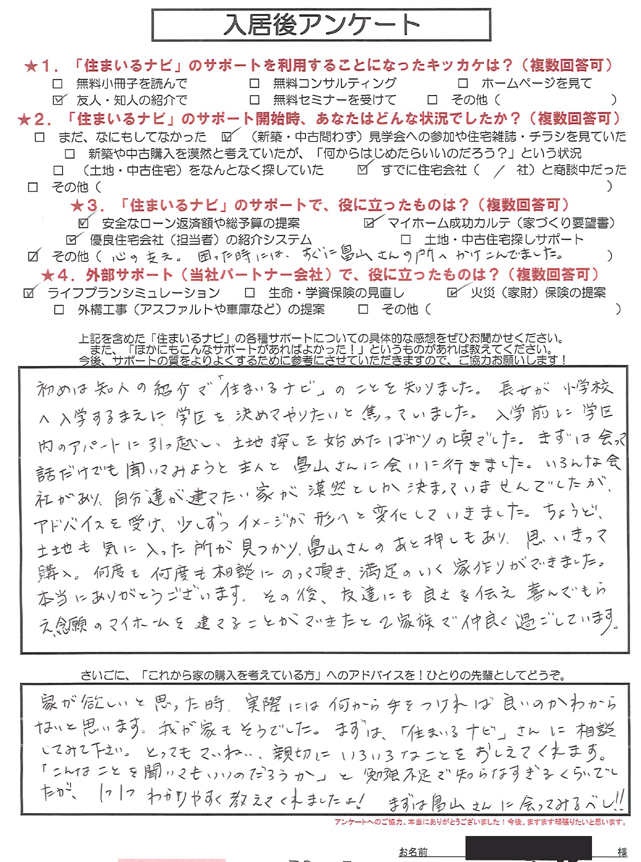 入居後アンケート
★1．「住まいるナビ」のサポートを利用することになったキッカケは？（複数回答可）
□ 無料小冊子を読んで □ 無料コンサルティング □ ホームページを見て
☑ 友人・知人の紹介で □ 無料セミナーを受けて □ その他（ ）
★2．「住まいるナビ」のサポート開始時、あなたはどんな状況でしたか？（複数回答可）
□ まだ、なにもしてなかった ☑（新築・中古問わず）見学会への参加や住宅雑誌・チラシを見ていた
□ 新築や中古購入を漠然と考えていたが、「何からはじめたらいいのだろう？」という状況
□ （土地・中古住宅）をなんとなく探していた ☑ すでに住宅会社（ / 社）と商談中だった
□ その他（ ）
★3．「住まいるナビ」のサポートで、役に立ったものは？（複数回答可）
☑ 安全なローン返済額や総予算の提案 ☑ マイホーム成功カルテ（家づくり要望書）
☑ 優良住宅会社（担当者）の紹介システム □ 土地・中古住宅探しサポート
☑ その他（ 心の支え。困った時には、すぐに畠山さんの所へかけこんでました。 ）
★4．外部サポート（当社パートナー会社）で、役に立ったものは？（複数回答可）
☑ ライフプランシミュレーション □ 生命・学資保険の見直し ☑ 火災（家財）保険の提案
□ 外構工事（アスファルトや車庫など）の提案 □ その他（ ）
上記を含めた「住まいるナビ」の各種サポートについての具体的な感想をぜひお聞かせください。
また、「ほかにもこんなサポートがあればよかった！」というものがあれば教えてください。
今後、サポートの質をよりよくするために参考にさせていただきますので、ご協力お願いします！
初めは知人の紹介で「住まいるナビ」のことを知りました。長女が小学校
へ入学するまえに学区を決めてやりたいと焦っていました。入学前に学区
内のアパートに引っ越し、土地探しを始めたばかりの頃でした。まずは会って
話だけでも聞いてみようと主人と畠山さんに会いに行きました。いろんな会
社があり、自分達が建てたい家が漠然としか決まっていませんでしたが、
アドバイスを受け、少しずつイメージが形へと変化していきました。ちょうど、
土地も気に入った所が見つかり、畠山さんのあと押しもあり、思いきって
購入。何度も何度も相談にのって頂き、満足のいく家作りができました。
本当にありがとうございます。その後、友達にも良さを伝え喜んでもら
え、念願のマイホームを建てることができたと2家族で仲良く過ごしています。
さいごに、「これから家の購入を考えている方」へのアドバイスを！ひとりの先輩としてどうぞ。
家が欲しいと思った時、実際には何から手をつければ良いのかわから
ないと思います。我が家もそうでした。まずは、「住まいるナビ」さんに相談
してみて下さい。とってもていねい、親切にいろいろなことをおしえてくれます。
「こんなことを聞いてもいいのだろうか」と勉強不足で知らなすぎるくらいでし
たが、1つ1つわかりやすく教えてくれましたよ！ まずは畠山さんに会ってみるべし!!
アンケートへのご協力、本当にありがとうございました！今後、ますます頑張りたいと思います。
お名前 様